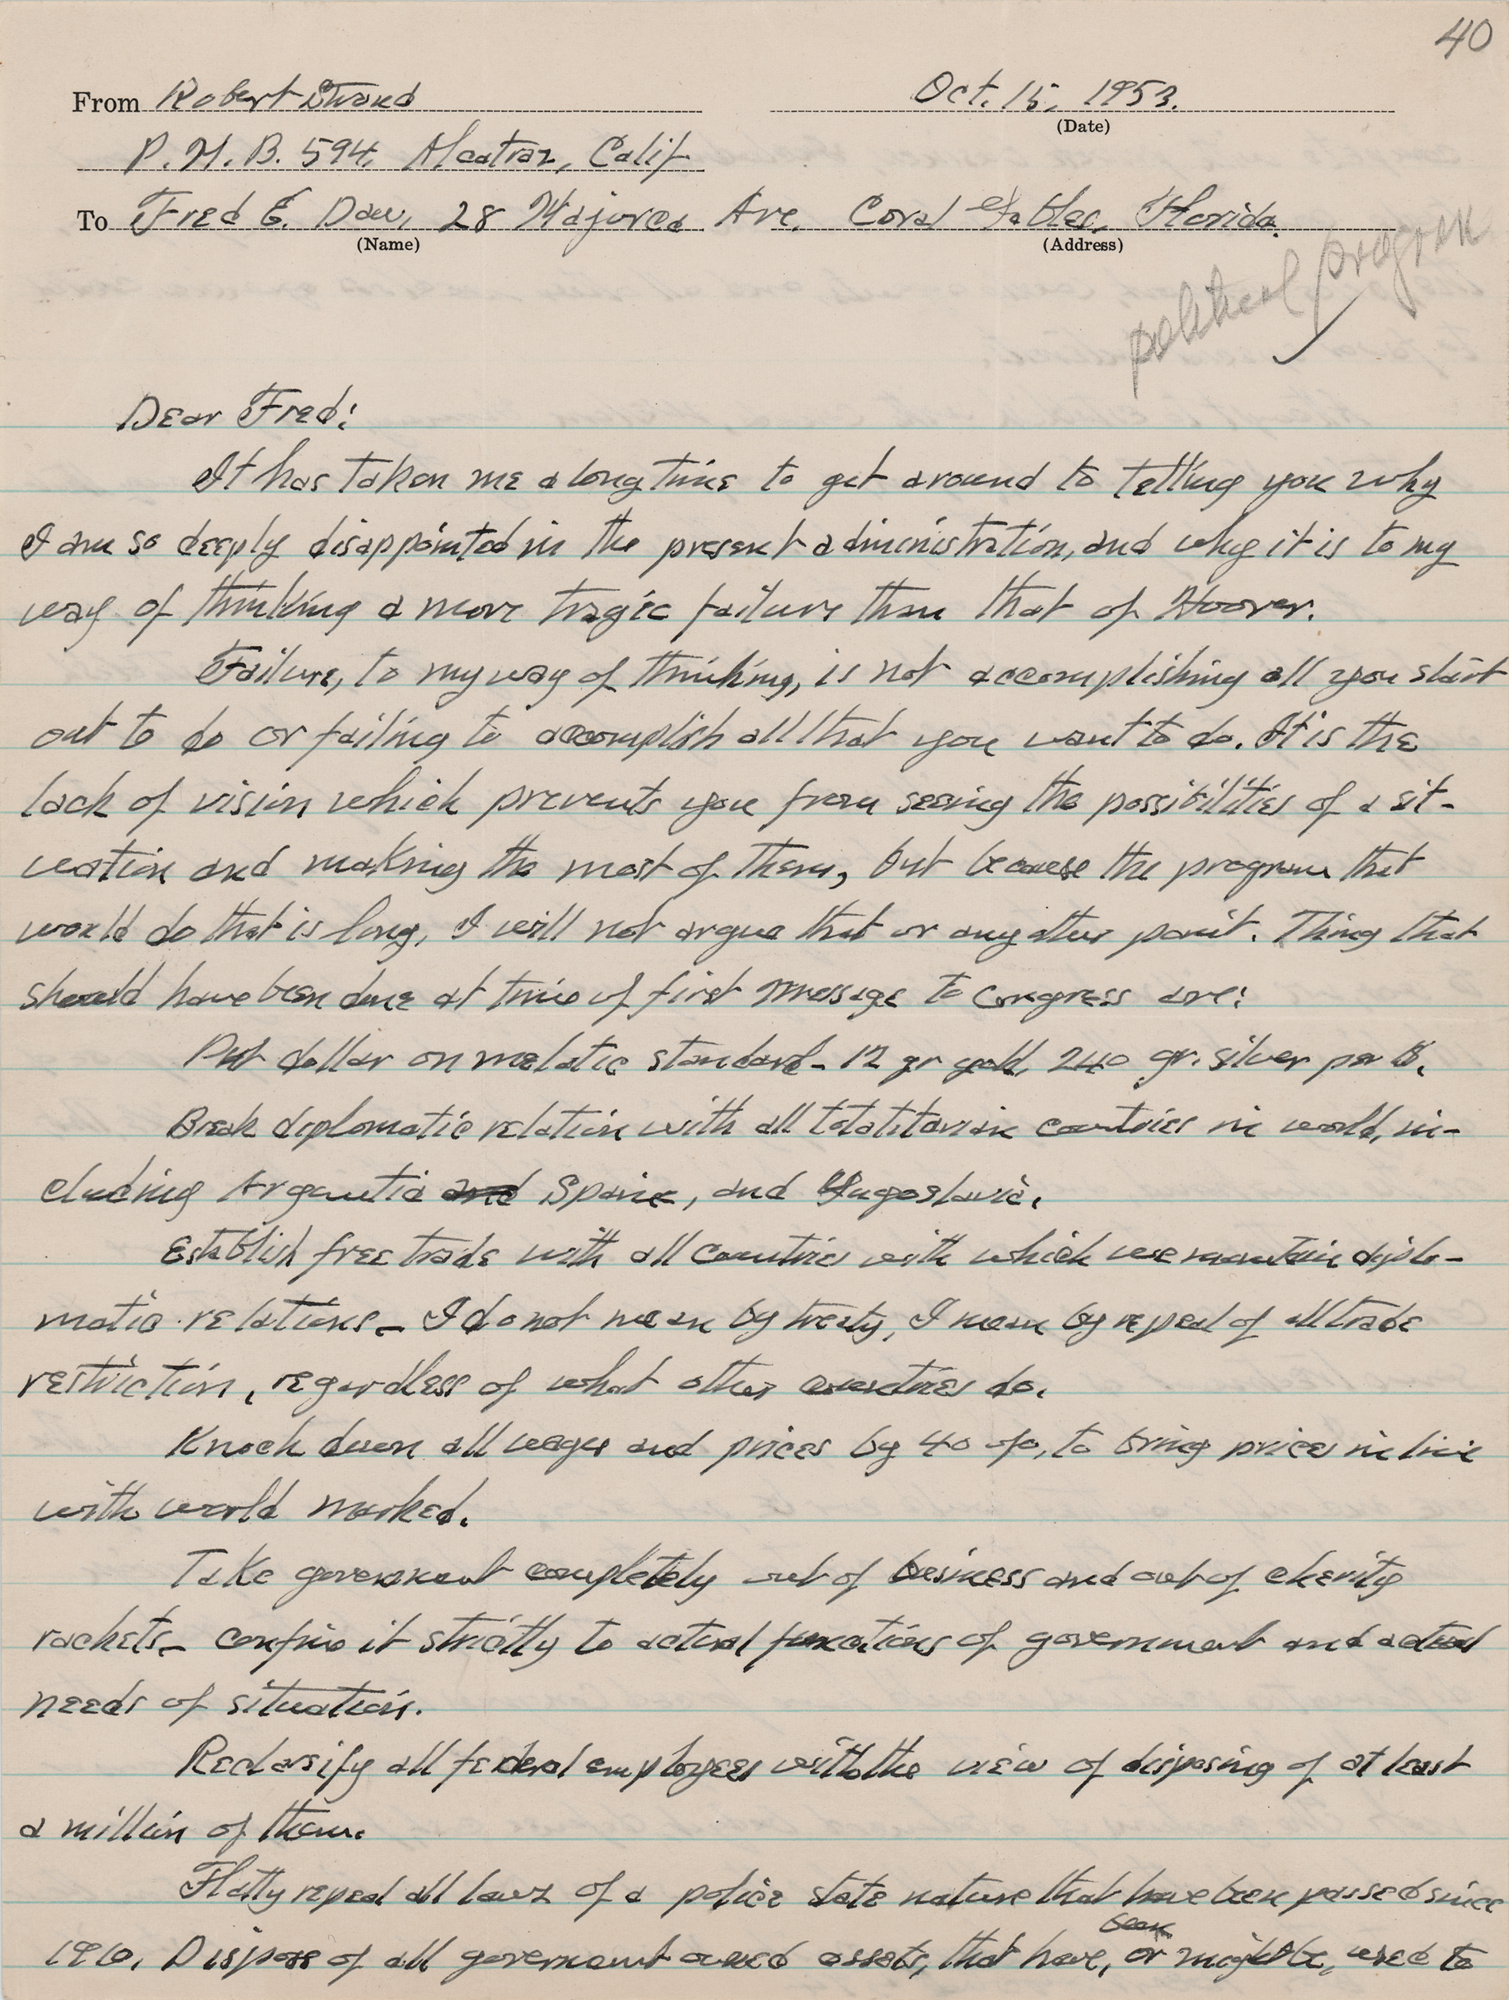 40
From Robert Stroud
Oct. 15, 1953.
(Date)
P.M.B. 594, Alcatraz, Calif
To Fred E. Daw, 28 Majorca Ave. Coral Gables, Florida.
(Name)
(Address)
political program
Dear Fred:
It has taken me a long time to get around to telling you why
I am so deeply disappointed in the present administration, and why it is to my
way of thinking a more tragic failure than that of Hoover.
Failure, to my way of thinking, is not accomplishing all you start
out to do or failing to accomplish all that you want to do. It is the
lack of vision which prevents you from seeing the possibilities of a sit-
uation and making the most of them, but because the program that
would do that is long, I will not argue that or any other point. Thing that
should have been done at time of first message to Congress are:
Put dollar on melatic standard - 12 gr gold, 240 gr. silver per $.
Break diplomatic relation with all totatitarian countries in world, in-
cluding Argentia and Spain, and Yugoslavia.
Establish free trade with all countries with which we maintain diplo-
matic relations - I do not mean by treaty, I mean by repeal of all trade
restriction, regardless of what other countries do.
Knock down all wages and prices by 40 %, to bring prices in line
with world marked.
Take government completely out of business and out of charity
rackets - confine it strictly to actual functions of government and actual
needs of situation.
Reclassify all federal employees with the view of disposing of at least
a million of them.
Flatly repeal all laws of a police state nature that have been passed since
1910. Dispose of all government owned assets, that have, been or might be, used to